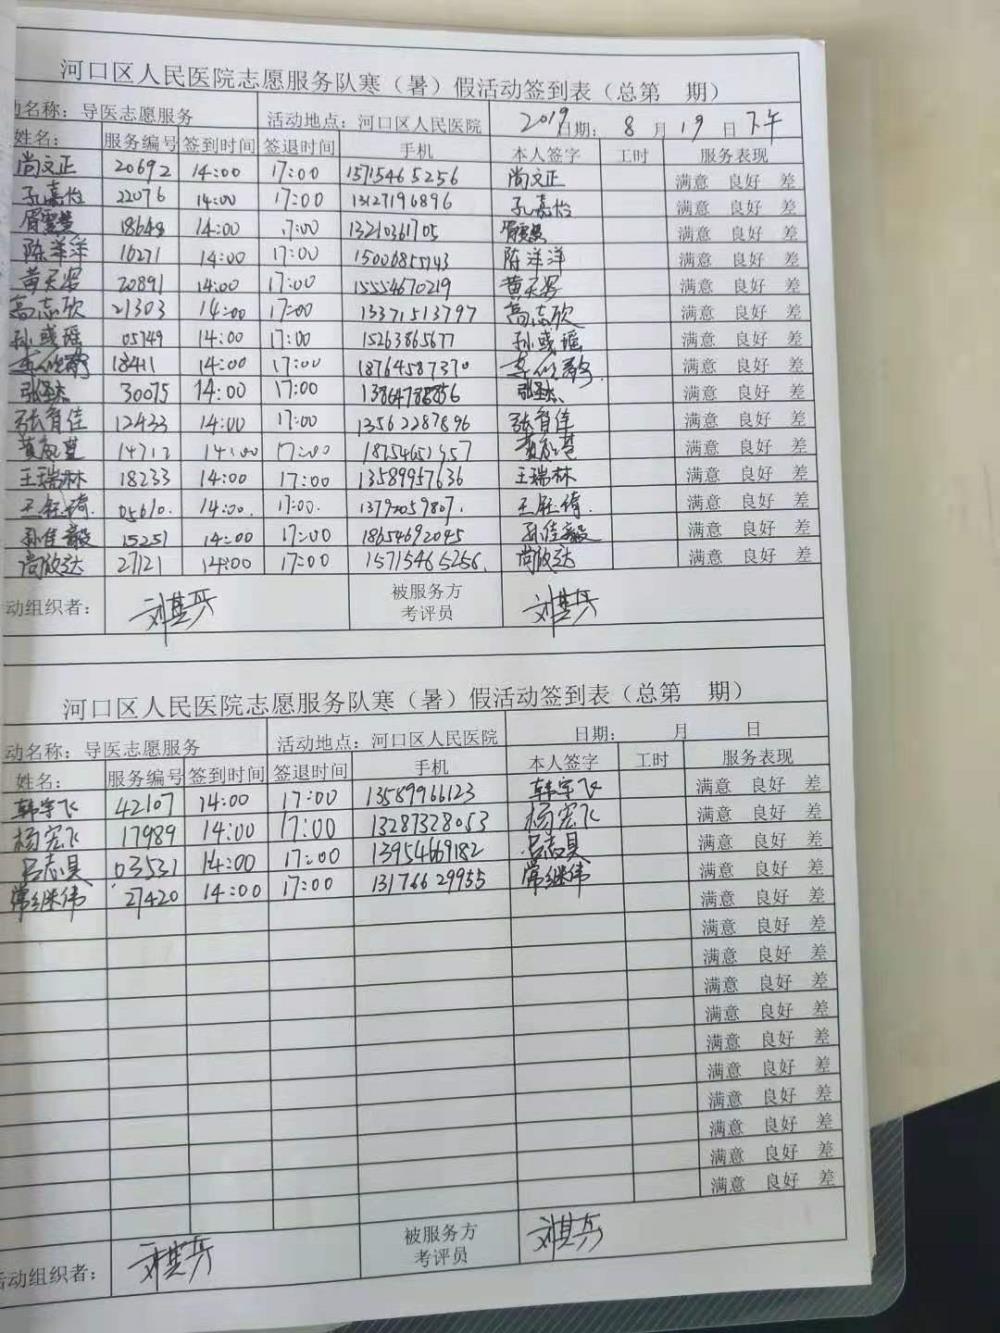 河口区人民医院志愿服务队寒（暑）假活动签到表（总第 期）
动名称：导医志愿服务 活动地点：河口区人民医院 2019日期：8月19日下午
姓名： 服务编号 签到时间 签退时间 手机 本人签字 工时 服务表现
尚文正 20692 14:00 17:00 15715465256 尚文正 满意 良好 差
孔嘉怡 22076 14:00 17:00 13127196896 孔嘉怡 满意 良好 差
18648 14:00 17:00 13210361705 满意 良好 差
陈洋洋 16271 14:00 17:00 15006855143 陈洋洋 满意 良好 差
20891 14:00 17:00 15554670219 满意 良好 差
高志欣 21303 14:00 17:00 13371513797 高志欣 满意 良好 差
孙彧瑶 05749 14:00 17:00 15263865677 孙彧瑶 满意 良好 差
18411 14:00 17:00 18764587370 满意 良好 差
30075 14:00 17:00 满意 良好 差
张智佳 12433 14:00 17:00 13562287896 张智佳 满意 良好 差
14:00 17:00 满意 良好 差
王瑞林 18233 14:00 17:00 13589957636 王瑞林 满意 良好 差
05610. 14:00. 17:00. 满意 良好 差
孙佳毅 15251 14:00 17:00 18654692045 孙佳毅 满意 良好 差
尚欣达 27121 14:00 17:00 15715465256. 尚欣达 满意 良好 差
动组织者： 刘其兵 被服务方 刘其兵
考评员
河口区人民医院志愿服务队寒（暑）假活动签到表（总第 期）
动名称：导医志愿服务 活动地点：河口区人民医院 日期： 月 日
姓名： 服务编号 签到时间 签退时间 手机 本人签字 工时 服务表现
韩宇飞 42107 14:00 17:00 13589966123 韩宇飞 满意 良好 差
杨宏飞 17989 14:00 17:00 13287328053 杨宏飞 满意 良好 差
吕志昊 03531 14:00 17:00 13954669182 吕志昊 满意 良好 差
常继伟 27420 14:00 17:00 13176629955 常继伟 满意 良好 差
满意 良好 差
满意 良好 差
满意 良好 差
满意 良好 差
满意 良好 差
满意 良好 差
满意 良好 差
满意 良好 差
满意 良好 差
满意 良好 差
满意 良好 差
活动组织者： 刘其兵 被服务方 刘其兵
考评员